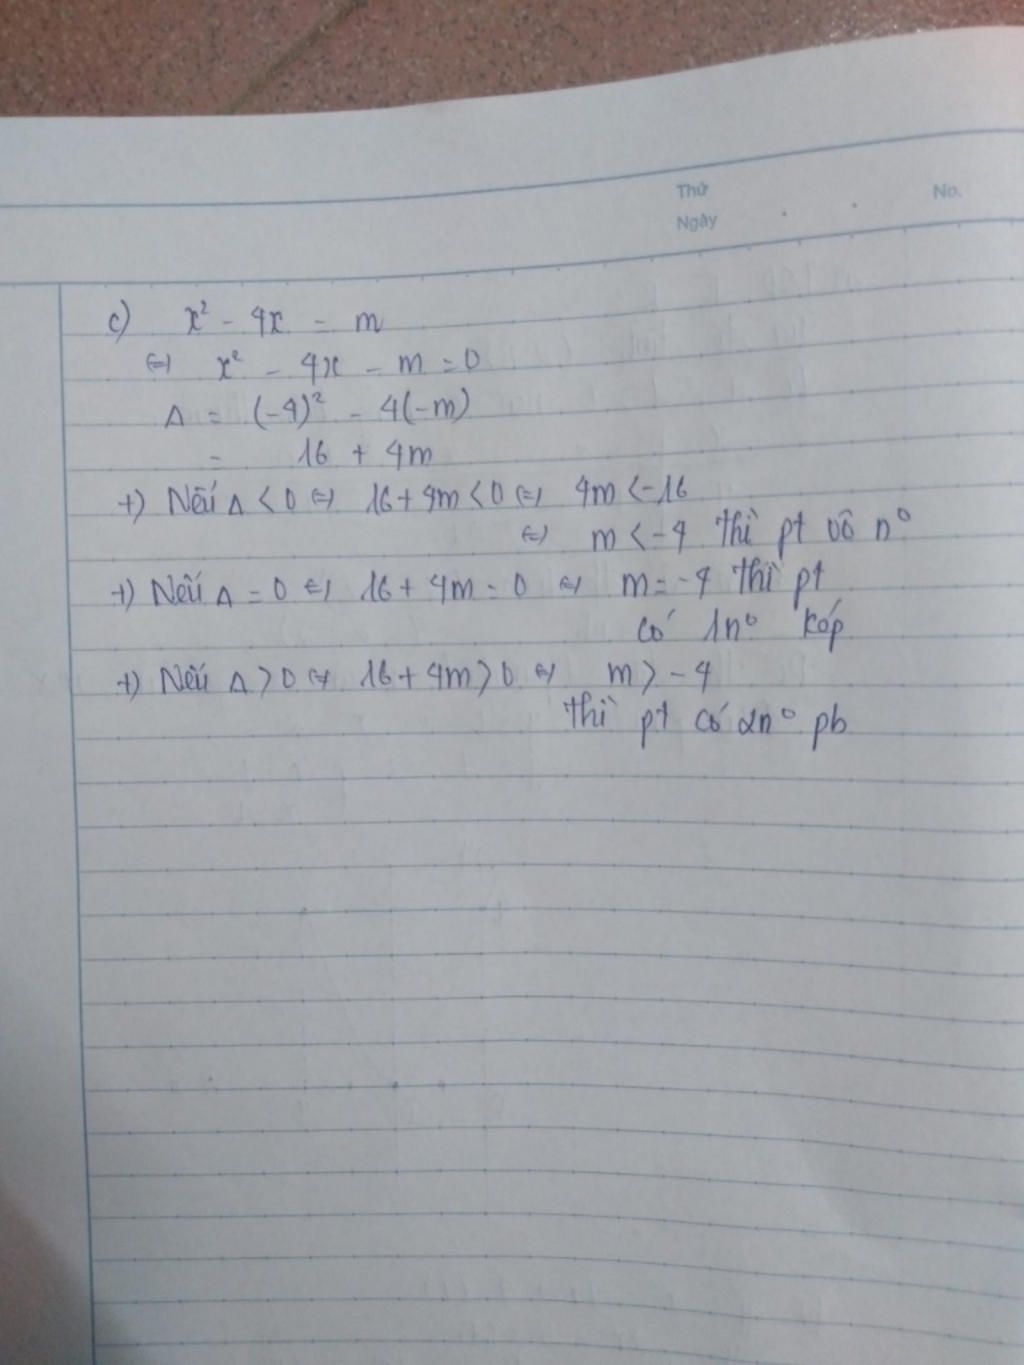 Thứ
No.
Ngày
c) x² - 4x = m
⇔ x² - 4x - m = 0
Δ = (-4)² - 4(-m)
= 16 + 4m
+) Nếu Δ < 0 ⇔ 16 + 4m < 0 ⇔ 4m < -16
⇔ m < -4 thì pt vô n⁰
+) Nếu Δ = 0 ⇔ 16 + 4m = 0 ⇔ m = -4 thì pt
có 1n⁰ kép
+) Nếu Δ > 0 ⇔ 16 + 4m > 0 ⇔ m > -4
thì pt có 2n⁰ pb